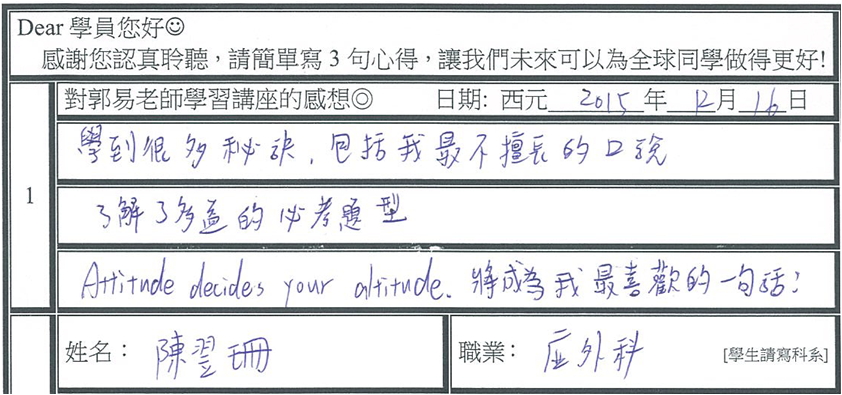 Dear 學員您好☺
感謝您認真聆聽，請簡單寫 3 句心得，讓我們未來可以為全球同學做得更好!
對郭易老師學習講座的感想◎ 日期: 西元 2015 年 12 月 16 日
學到很多秘訣，包括我最不擅長的口說
1
了解了多益的必考題型
Attitude decides your altitude. 將成為我最喜歡的一句話!
姓名： 陳翌珊 職業： 應外科 [學生請寫科系]